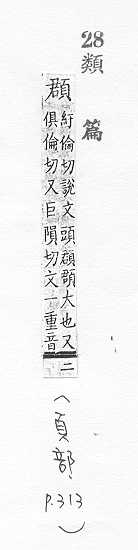 28
類篇
頵
紆倫切說文頭頵頵大也又
俱倫切又巨隕切文一重音
二
(頁部
p.313)